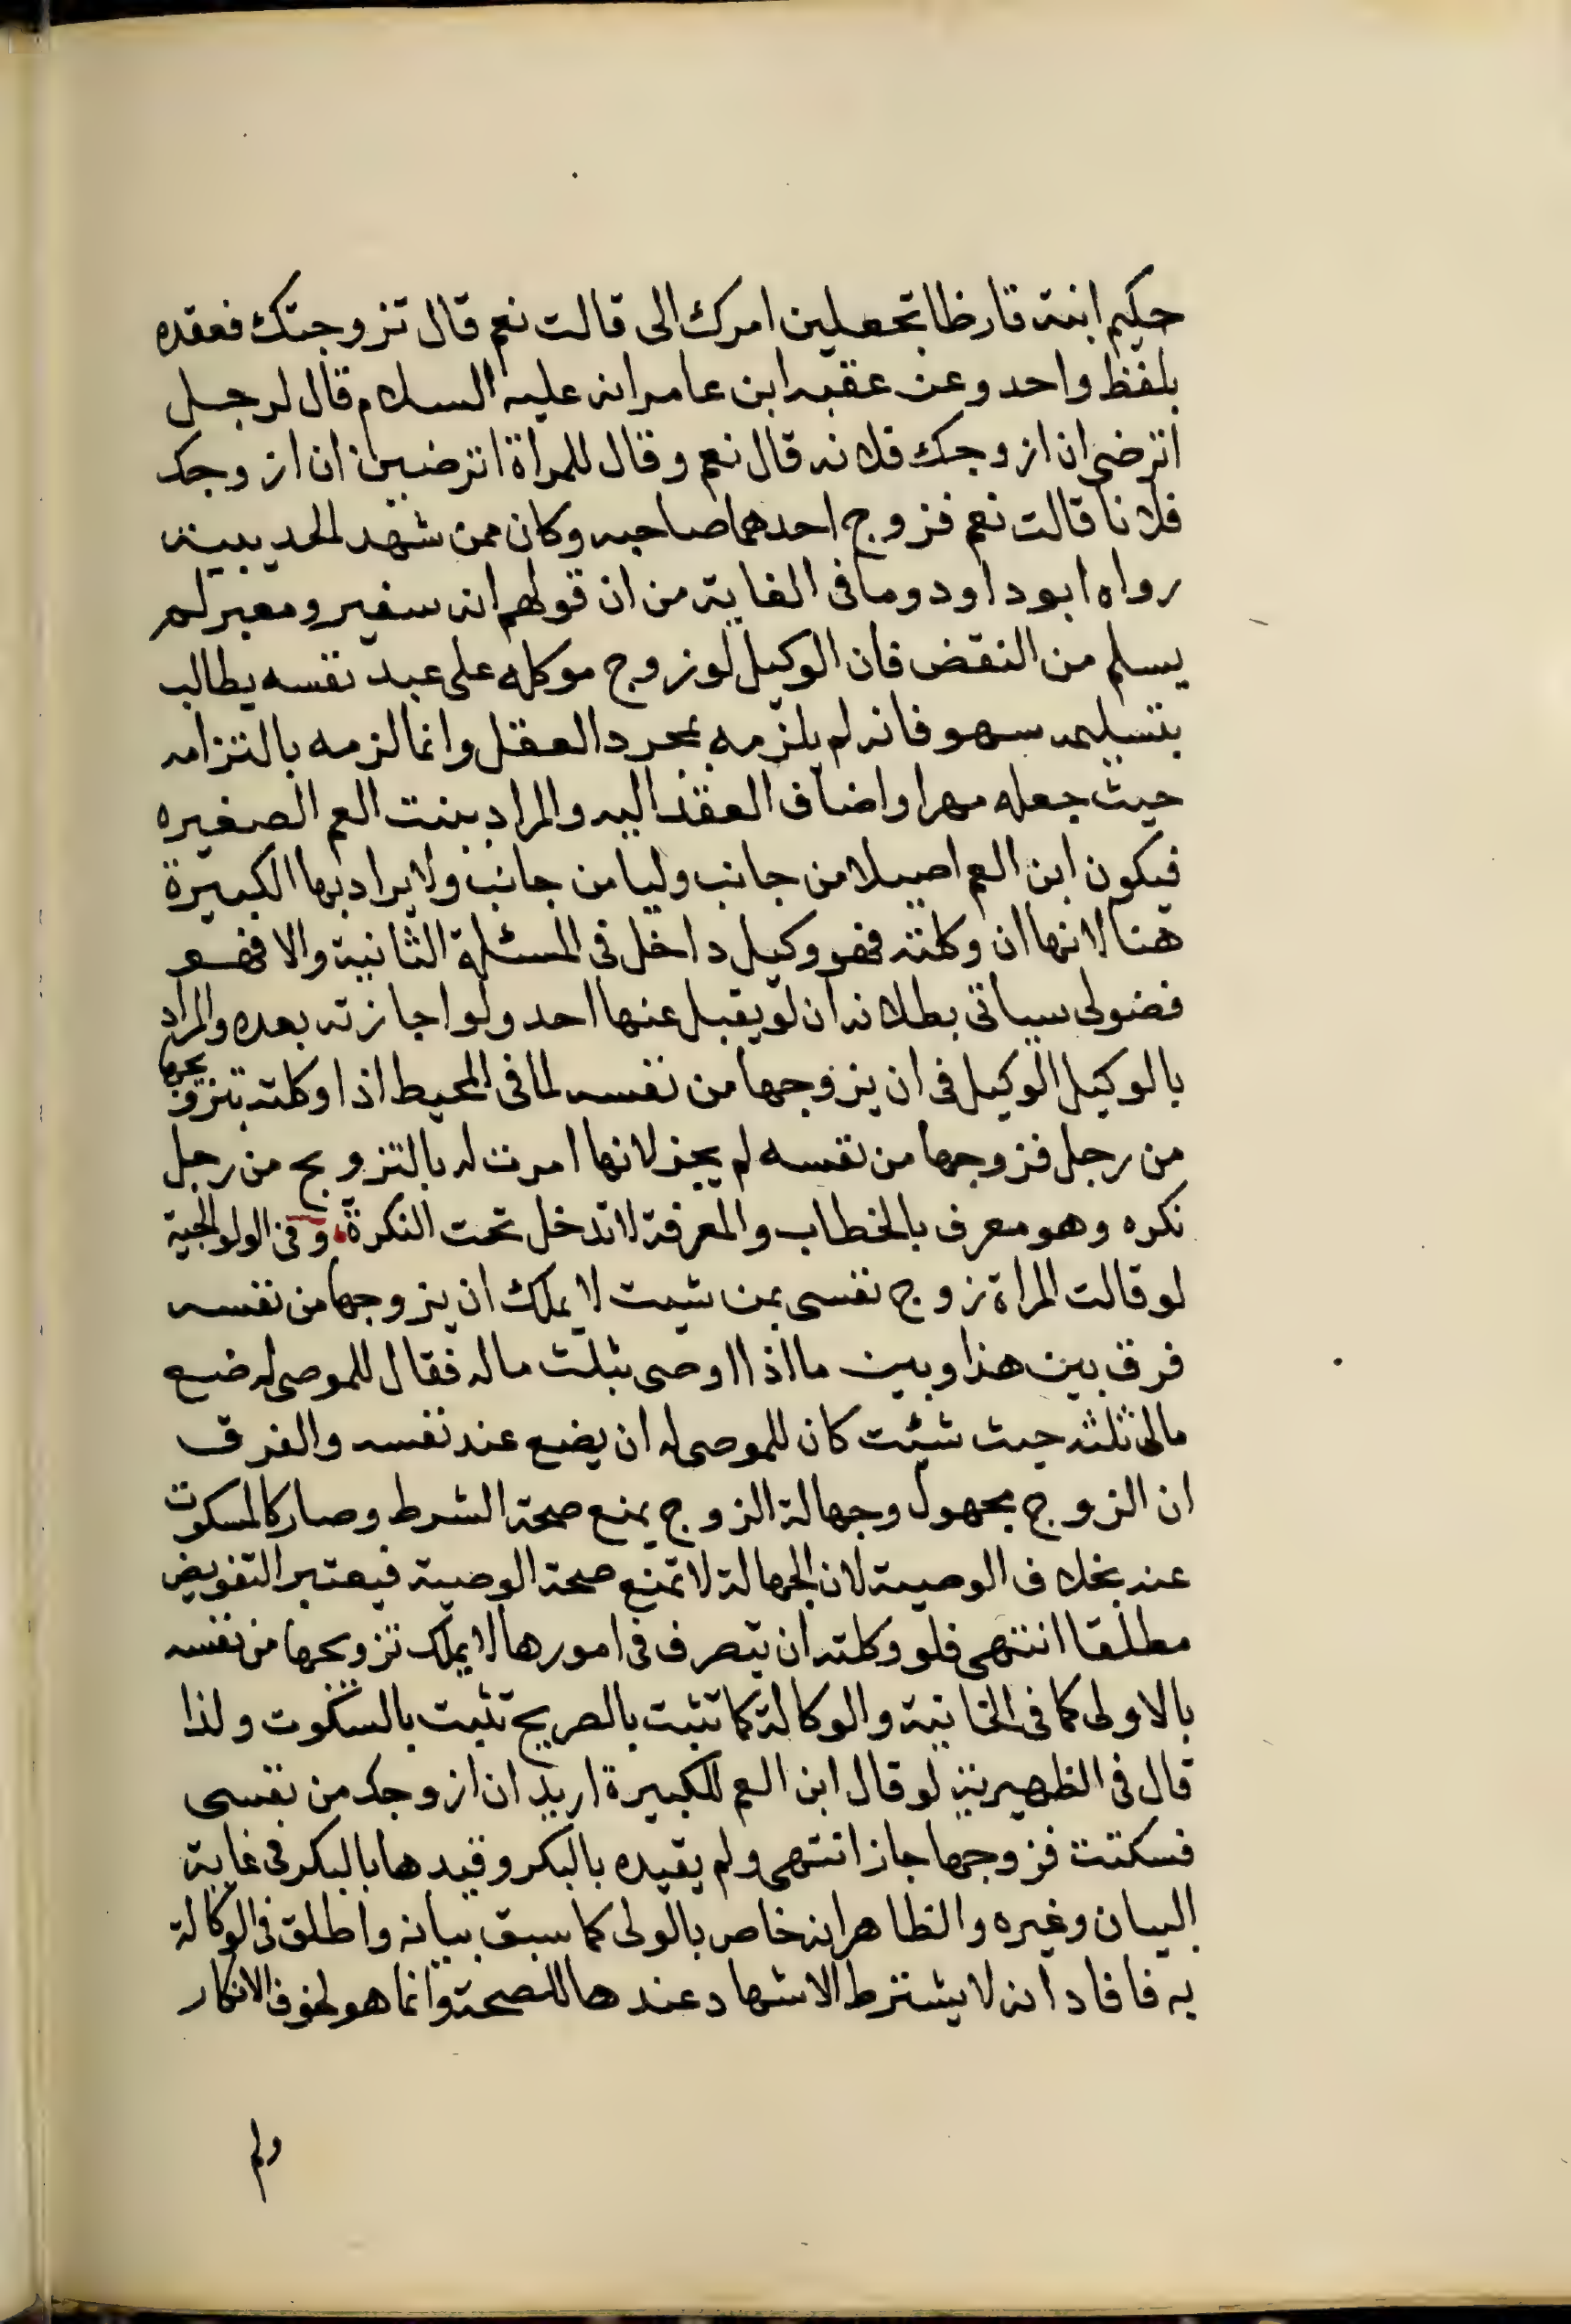 حكيم ابنة قارظ اتجعلين امرك الى قالت نعم قال تزوجتك فعقده
بلفظ واحد وعن عقبه ابن عامر انه عليه السلام قال لرجل
اترضى ان ازوجك فلانه قال نعم وقال للمراة اترضين ان ازوجك
فلانا قالت نعم فزوج احدهما صاحبه وكان ممن شهد الحديبية
رواه ابو داود وما فى الغاية من ان قولهم انه سفير ومعبر لم
يسلم من النقض فان الوكيل لو زوج موكله على عبد نفسه يطالب
بتسليمه سهو فانه لم يلزمه بمجرد العقد وانما لزمه بالتزامه
حيث جعله مهرا واضاف العقد اليه والمراد ببنت العم الصغيره
فيكون ابن العم اصيلا من جانب وليا من جانب ولا يراد بها الكبيرة
هنا لانها ان وكلته فهو وكيل داخل فى المسئلة الثانية والا فهو
فضولى سياتى بطلانه ان لو يقبل عنها احد ولو اجازته بعده والمراد
بالوكيل الوكيل فى ان يزوجها من نفسه لما فى المحيط اذا وكلته بتزويجها
من رجل فزوجها من نفسه لم يجز لانها امرت له بالتزويج من رجل
نكره وهو معرف بالخطاب والمعرفة لا تدخل تحت النكرة وفى الولوالجية
لو قالت المراة زوج نفسى بمن شيت لا يملك ان يزوجها من نفسه
فرق بين هذا وبين ما اذا اوصى بثلث ماله فقال للموصى له ضع
مالى ثلثه حيث شئت كان للموصى له ان يضع عند نفسه والفرق
ان الزوج مجهول وجهالة الزوج يمنع صحة الشرط وصار كالمسكوت
عنه بخلاف الوصية لان الجهالة لا تمنع صحة الوصية فيعتبر التفويض
مطلقا انتهى فلو وكلته ان يتصرف فى امورها لا يملك تزويجها من نفسه
بالاولى كما فى الخانية والوكالة كما تثبت بالصريح تثبت بالسكوت ولذا
قال فى الظهيرية لو قال ابن العم للكبيرة اريد ان ازوجك من نفسى
فسكتت فزوجها جاز انتهى ولم يقيده بالبكر وقيدها بالبكر فى غاية
البيان وغيره والظاهر انه خاص بالولى كما سبق بيانه واطلق فى الوكالة
به فافاد انه لا يشترط الاشهاد عندها للصحة وانما هو لخوف الانكار
ولم